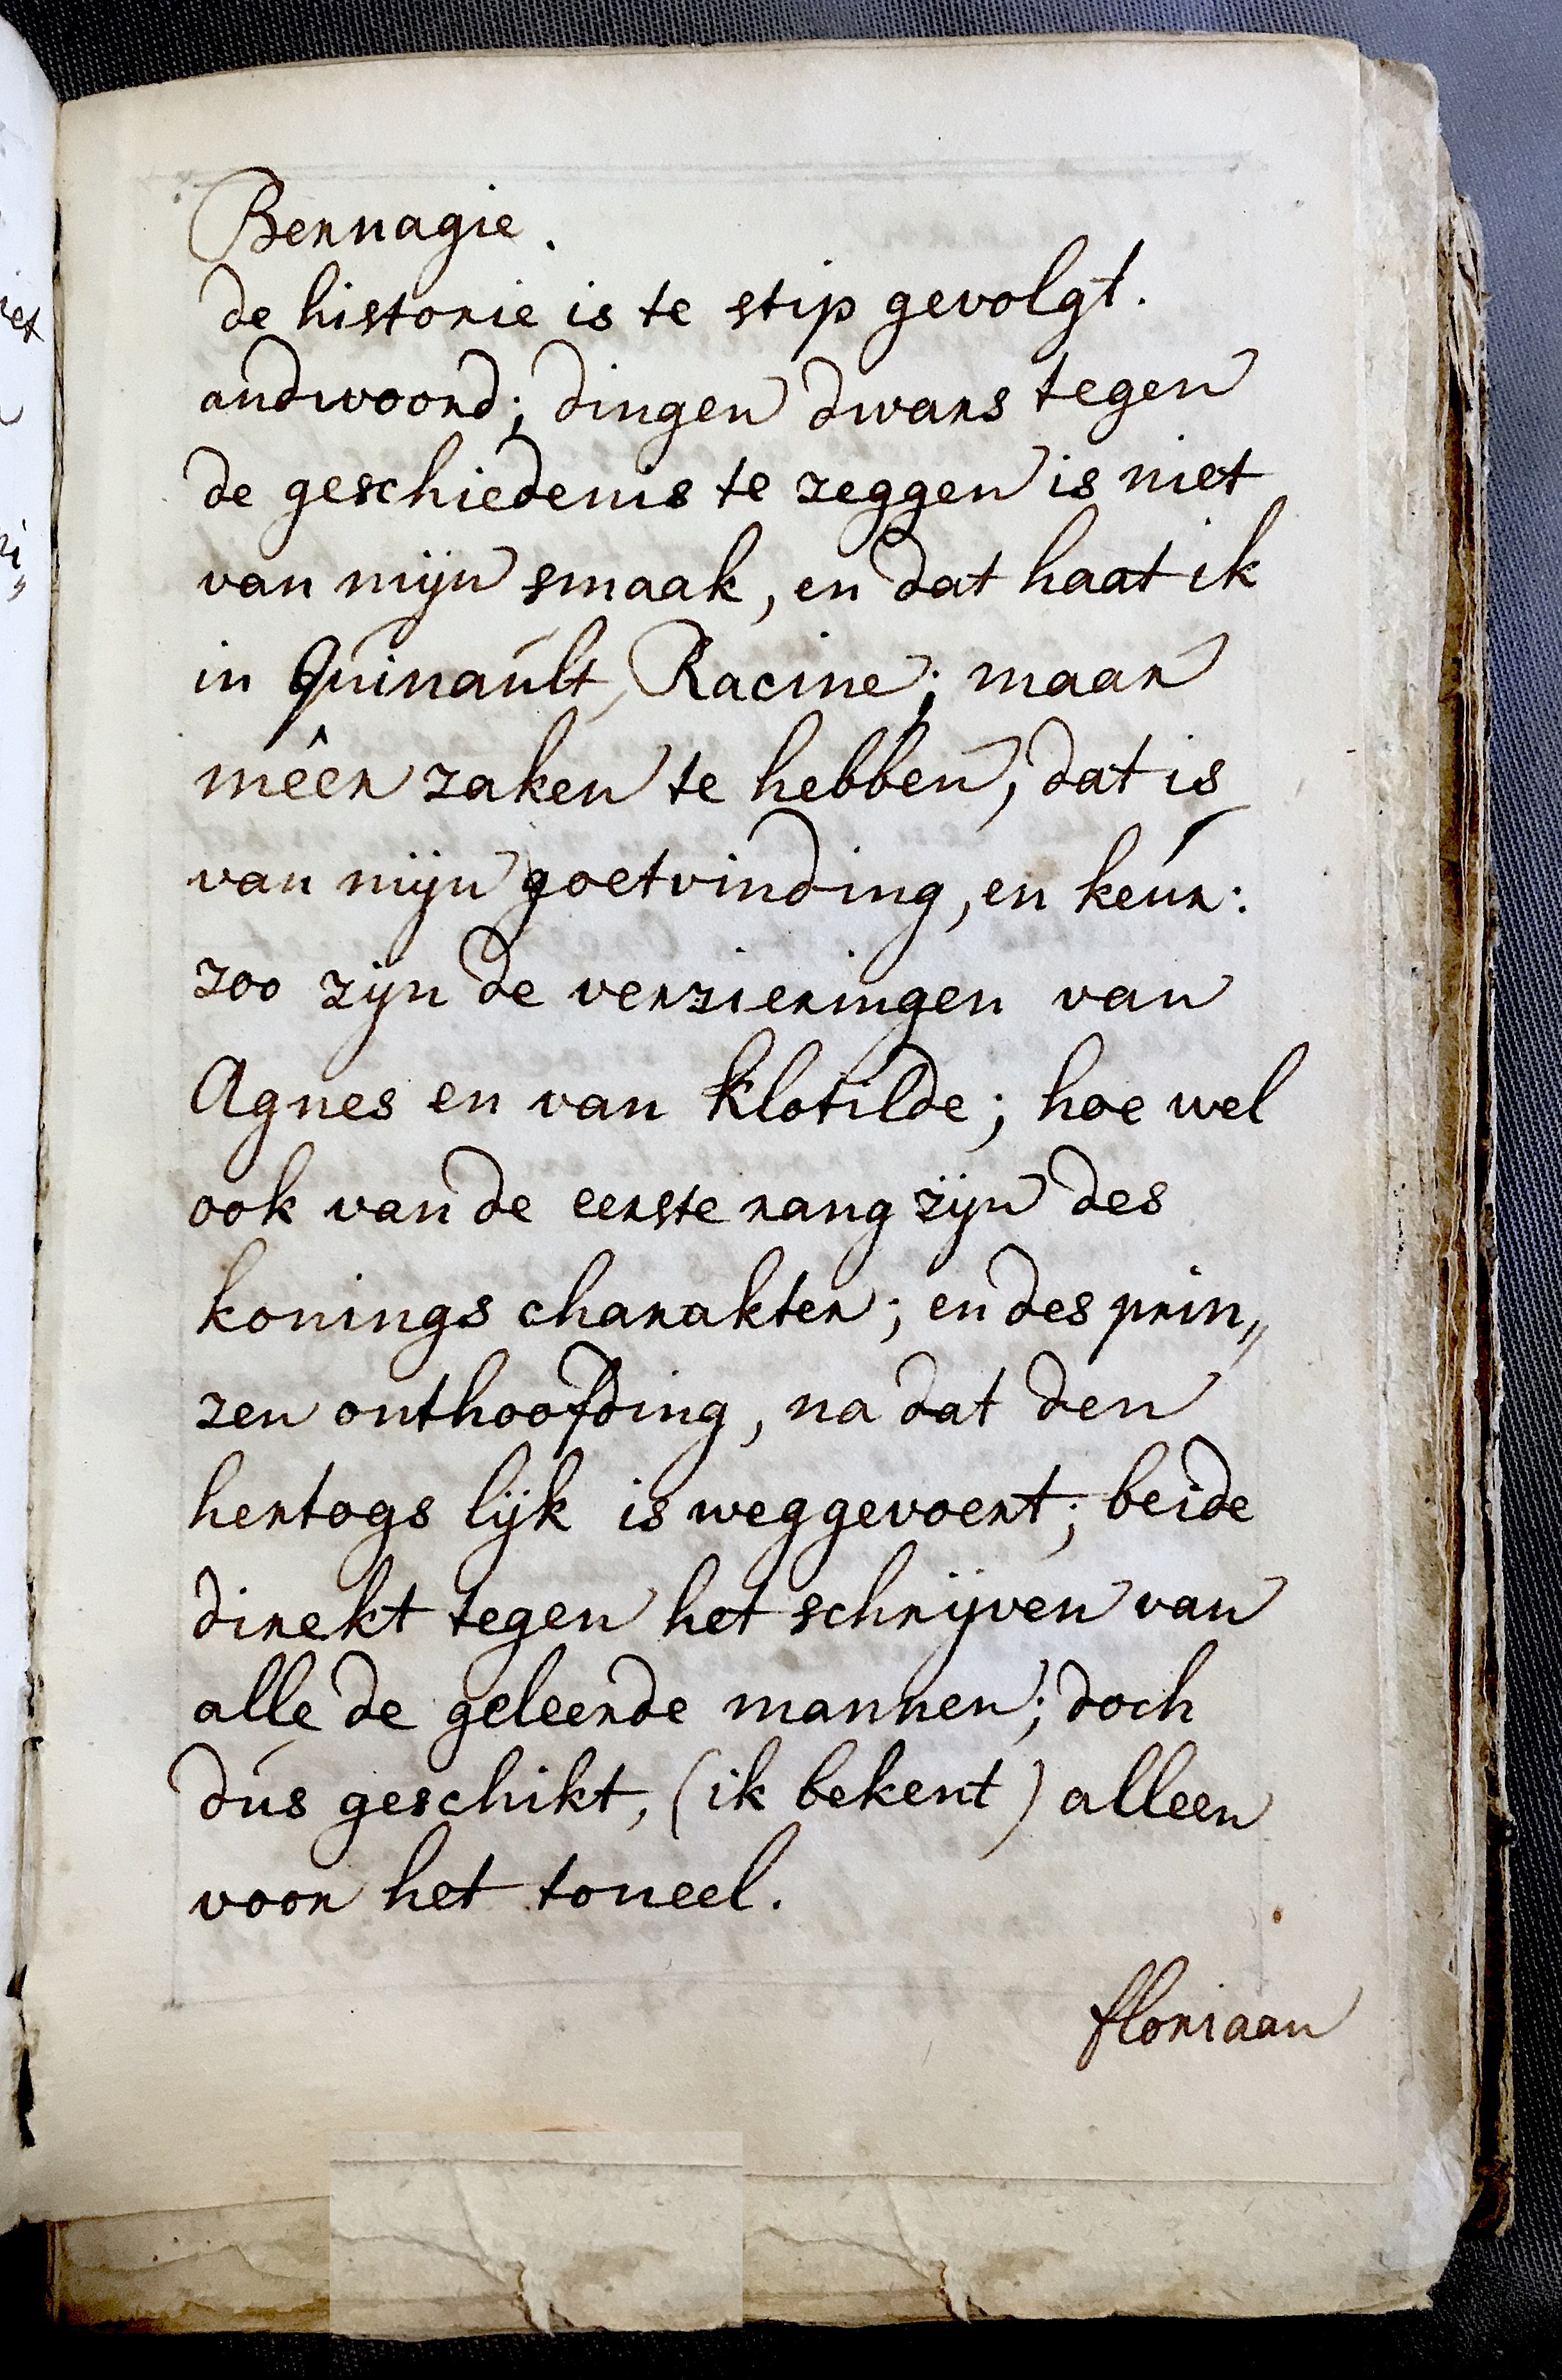 Bernagie.
de historie is te stip gevolgt.
andwoord; dingen dwars tegen
de geschiedenis te zeggen is niet
van mijn smaak, en dat haat ik
in Quinault, Racine; maar
mêer zaken te hebben, dat is
van mijn goetvinding, en keur:
zoo zijn de verzieringen van
Agnes en van Klotilde; hoe wel
ook van de eerste rang zijn des
konings charakter; en des prin„
zen onthoofding, na dat den
hertogs lijk is weggevoert; beide
direkt tegen het schrijven van
alle de geleerde mannen; doch
dus geschikt, (ik bekent) alleen
voor het toneel.
floriaan